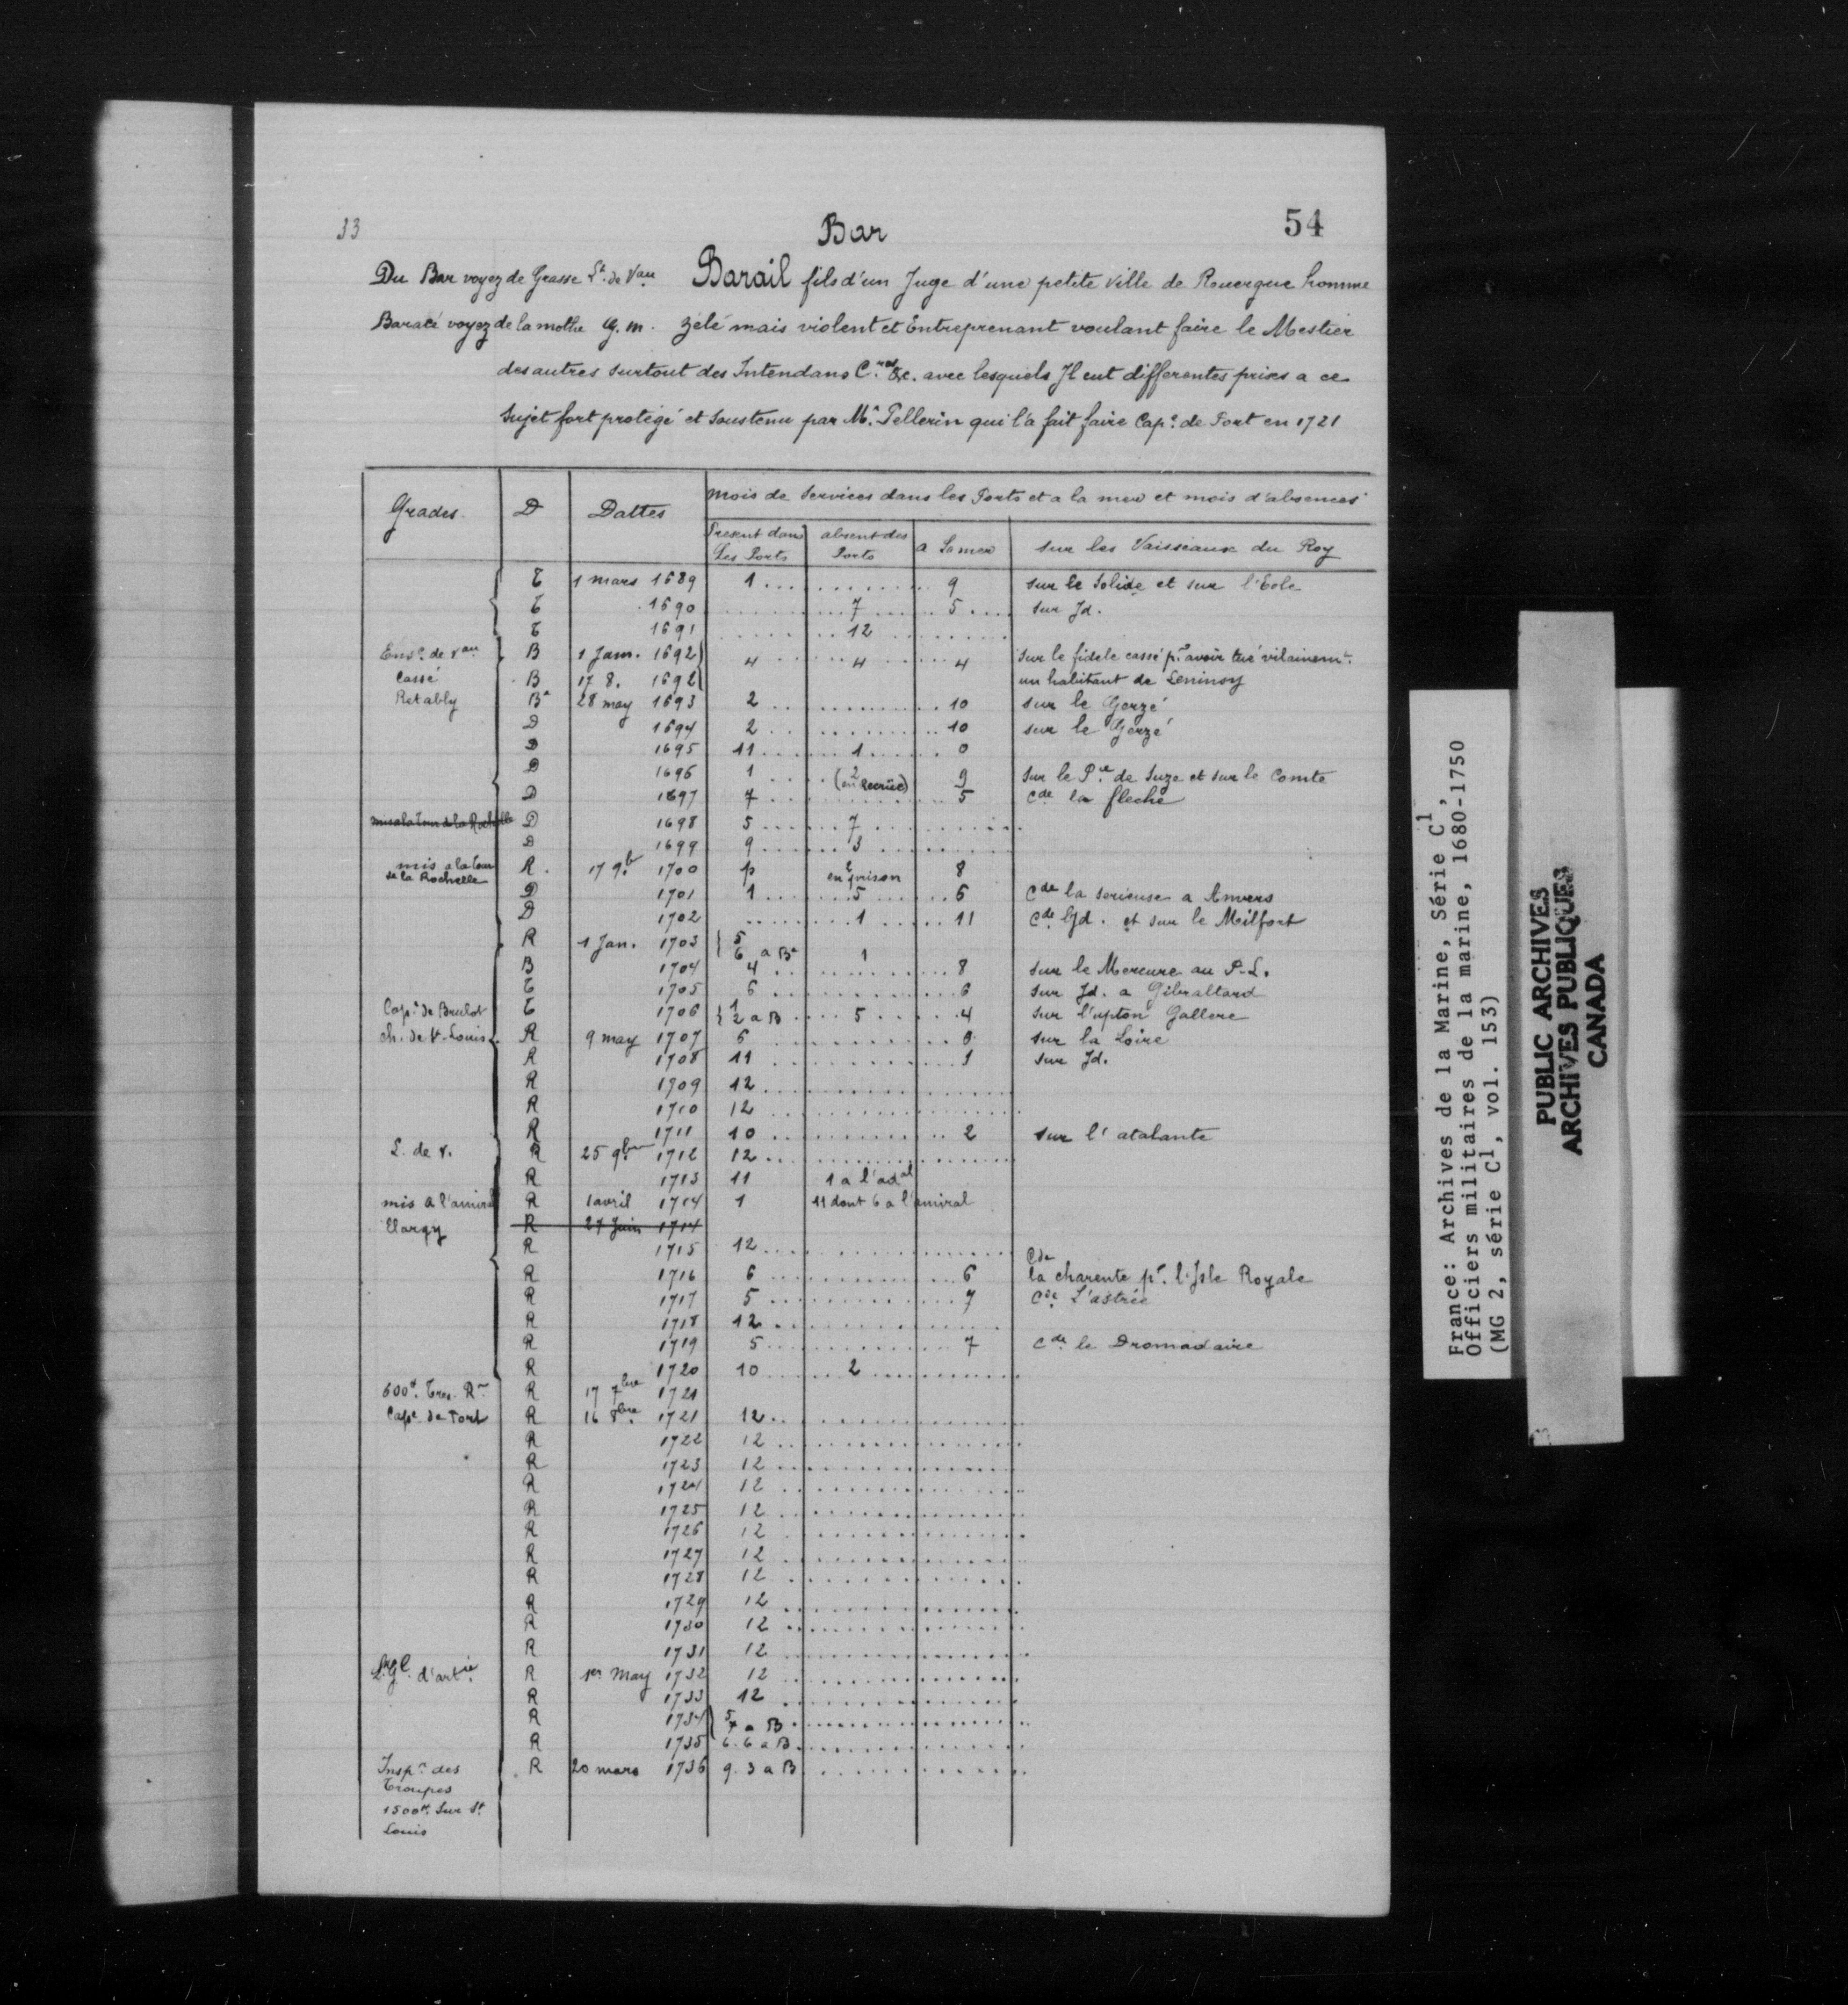 33
Bar
54
Du Bar voyez de Grasse Lt. de Vau
Baracé voyez de la mothe G. m.
Barail fils d'un Juge d'une petite ville de Rouergue homme
zelé mais violent et Entreprenant voulant faire le Mestier
des autres surtout des Intendans C.res &c. avec lesquels Il eut differentes prises a ce
sujet fort protégé et soustenu par Mr. Pellerin qui l'a fait faire Cap.e de Port en 1721
Grades. D Dattes mois de Services dans les Ports et a la mer et mois d'absences
Present dans Les Ports absent des Ports a La mer sur les Vaisseaux du Roy
T 1 mars 1689 1 ... 9 sur le Solide et sur l'Eole
T 1690 ... 7 ... 5 ... sur Id.
T 1691 ... 12 ...
Ens.e de vau B 1 Janv. 1692 4 ... 4 ... 4 sur le fidele cassé pr. avoir tué vilainemt.
Cassé B 17 8. 1692 un habitant de
Retably Ba 28 may 1693 2 ... 10 sur le Gerzé
D 1694 2 ... 10 sur le Gerzé
D 1695 11 ... 1 ... 0
D 1696 1 ... 2 (en Recrüe) 9 Sur le P.ce de Suze et sur le Comte
D 1697 7 ... 5 Cde la fleche
mis a la Tour de la Rochelle D 1698 5 ... 7 ...
D 1699 9 ... 3 ...
mis a la tour de la Rochelle R. 17 9.br 1700 p en prison 8
D 1701 1 ... 5 ... 6 Cde la serieuse a Anvers
D 1702 ... 1 ... 11 Cde Id. et sur le Milfort
R 1 Jan. 1703 5
6 a Ba 1
B 1704 4 ... 8 sur le Mercure au P-L.
T 1705 6 ... 6 sur Id. a Gibraltard
Cap.e de Brulot T 1706 1
2 a B ... 5 ... 4 sur l'upton Gallere
ch. de St-Louis R 9 may 1707 6 ... 0 sur la Loire
R 1708 11 ... 1 sur Id.
R 1709 12 ...
R 1710 12 ...
R 1711 10 ... 2 sur l'atalante
L. de v. R 25 9.bre 1712 12 ...
R 1713 11 1 a l'adal
mis a l'amiral R 1 avril 1714 1 11 dont 6 a l'amiral
Elargy R 27 Juin 1714
R 1715 12 ...
R 1716 6 ... 6 Cde la charente pr. l'Isle Royale
R 1717 5 ... 7 Cde L'astrée
R 1718 12 ...
R 1719 5 ... 7 Cde le Dromadaire
R 1720 10 ... 2 ...
600# Tres. R.al R 17 7bre 1721
Cap.e de Port R 16 8bre 1721 12 ...
R 1722 12 ...
R 1723 12 ...
R 1724 12 ...
R 1725 12 ...
R 1726 12 ...
R 1727 12 ...
R 1728 12 ...
R 1729 12 ...
R 1730 12 ...
R 1731 12 ...
Lt. Gl. d'artie. R 1er May 1732 12 ...
R 1733 12 ...
R 1734 5
7 a B ...
R 1735 6. 6 a B ...
Insp.r des R 20 mars 1736 9. 3 a B ...
Troupes
1500# Sur St
Louis
France: Archives de la Marine, Série C1,
Officiers militaires de la marine, 1680-1750
(MG 2, série C1, vol. 153)
PUBLIC ARCHIVES
ARCHIVES PUBLIQUES
CANADA